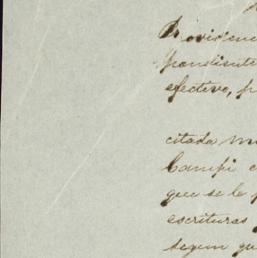 Providenc
pendiente
efectivo, p
citada m
Campi c
que se le p
escrituras
segun qu